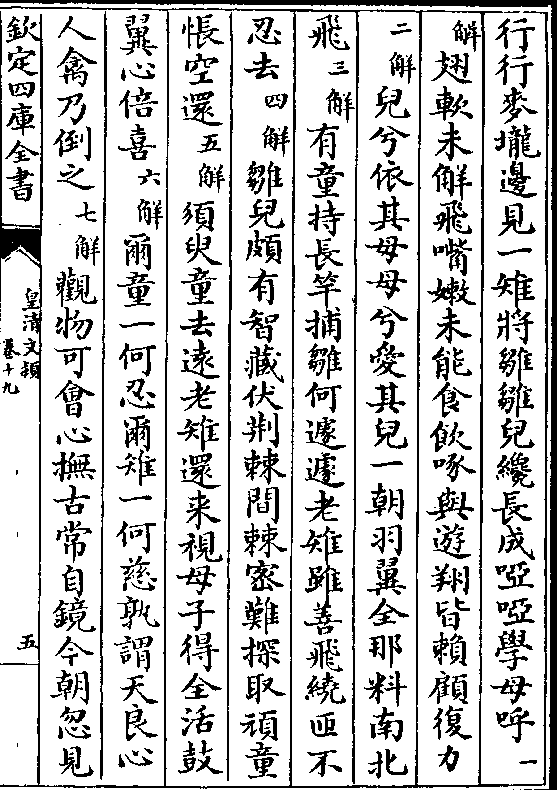 行行麥壠邊見一雉將雛雛兒纔長成啞啞學母呼一
解翅軟未解飛嘴嫩未能食飲啄與遊翔皆賴顧復力
二解兒兮依其母母兮愛其兒一朝羽翼全那料南北
飛三解有童持長竿捕雛何遽遽老雉雖善飛繞匝不
忍去四解雛兒頗有智藏伏荆棘間棘密難探取頑童
悵空還五解須臾童去遠老雉還来視母子得全活鼓
翼心倍喜六解爾童一何忍爾雉一何慈孰謂天良心
人禽乃倒之七解觀物可會心撫古常自鏡今朝忽見
欽定四庫全書
皇清文穎
卷十九
五